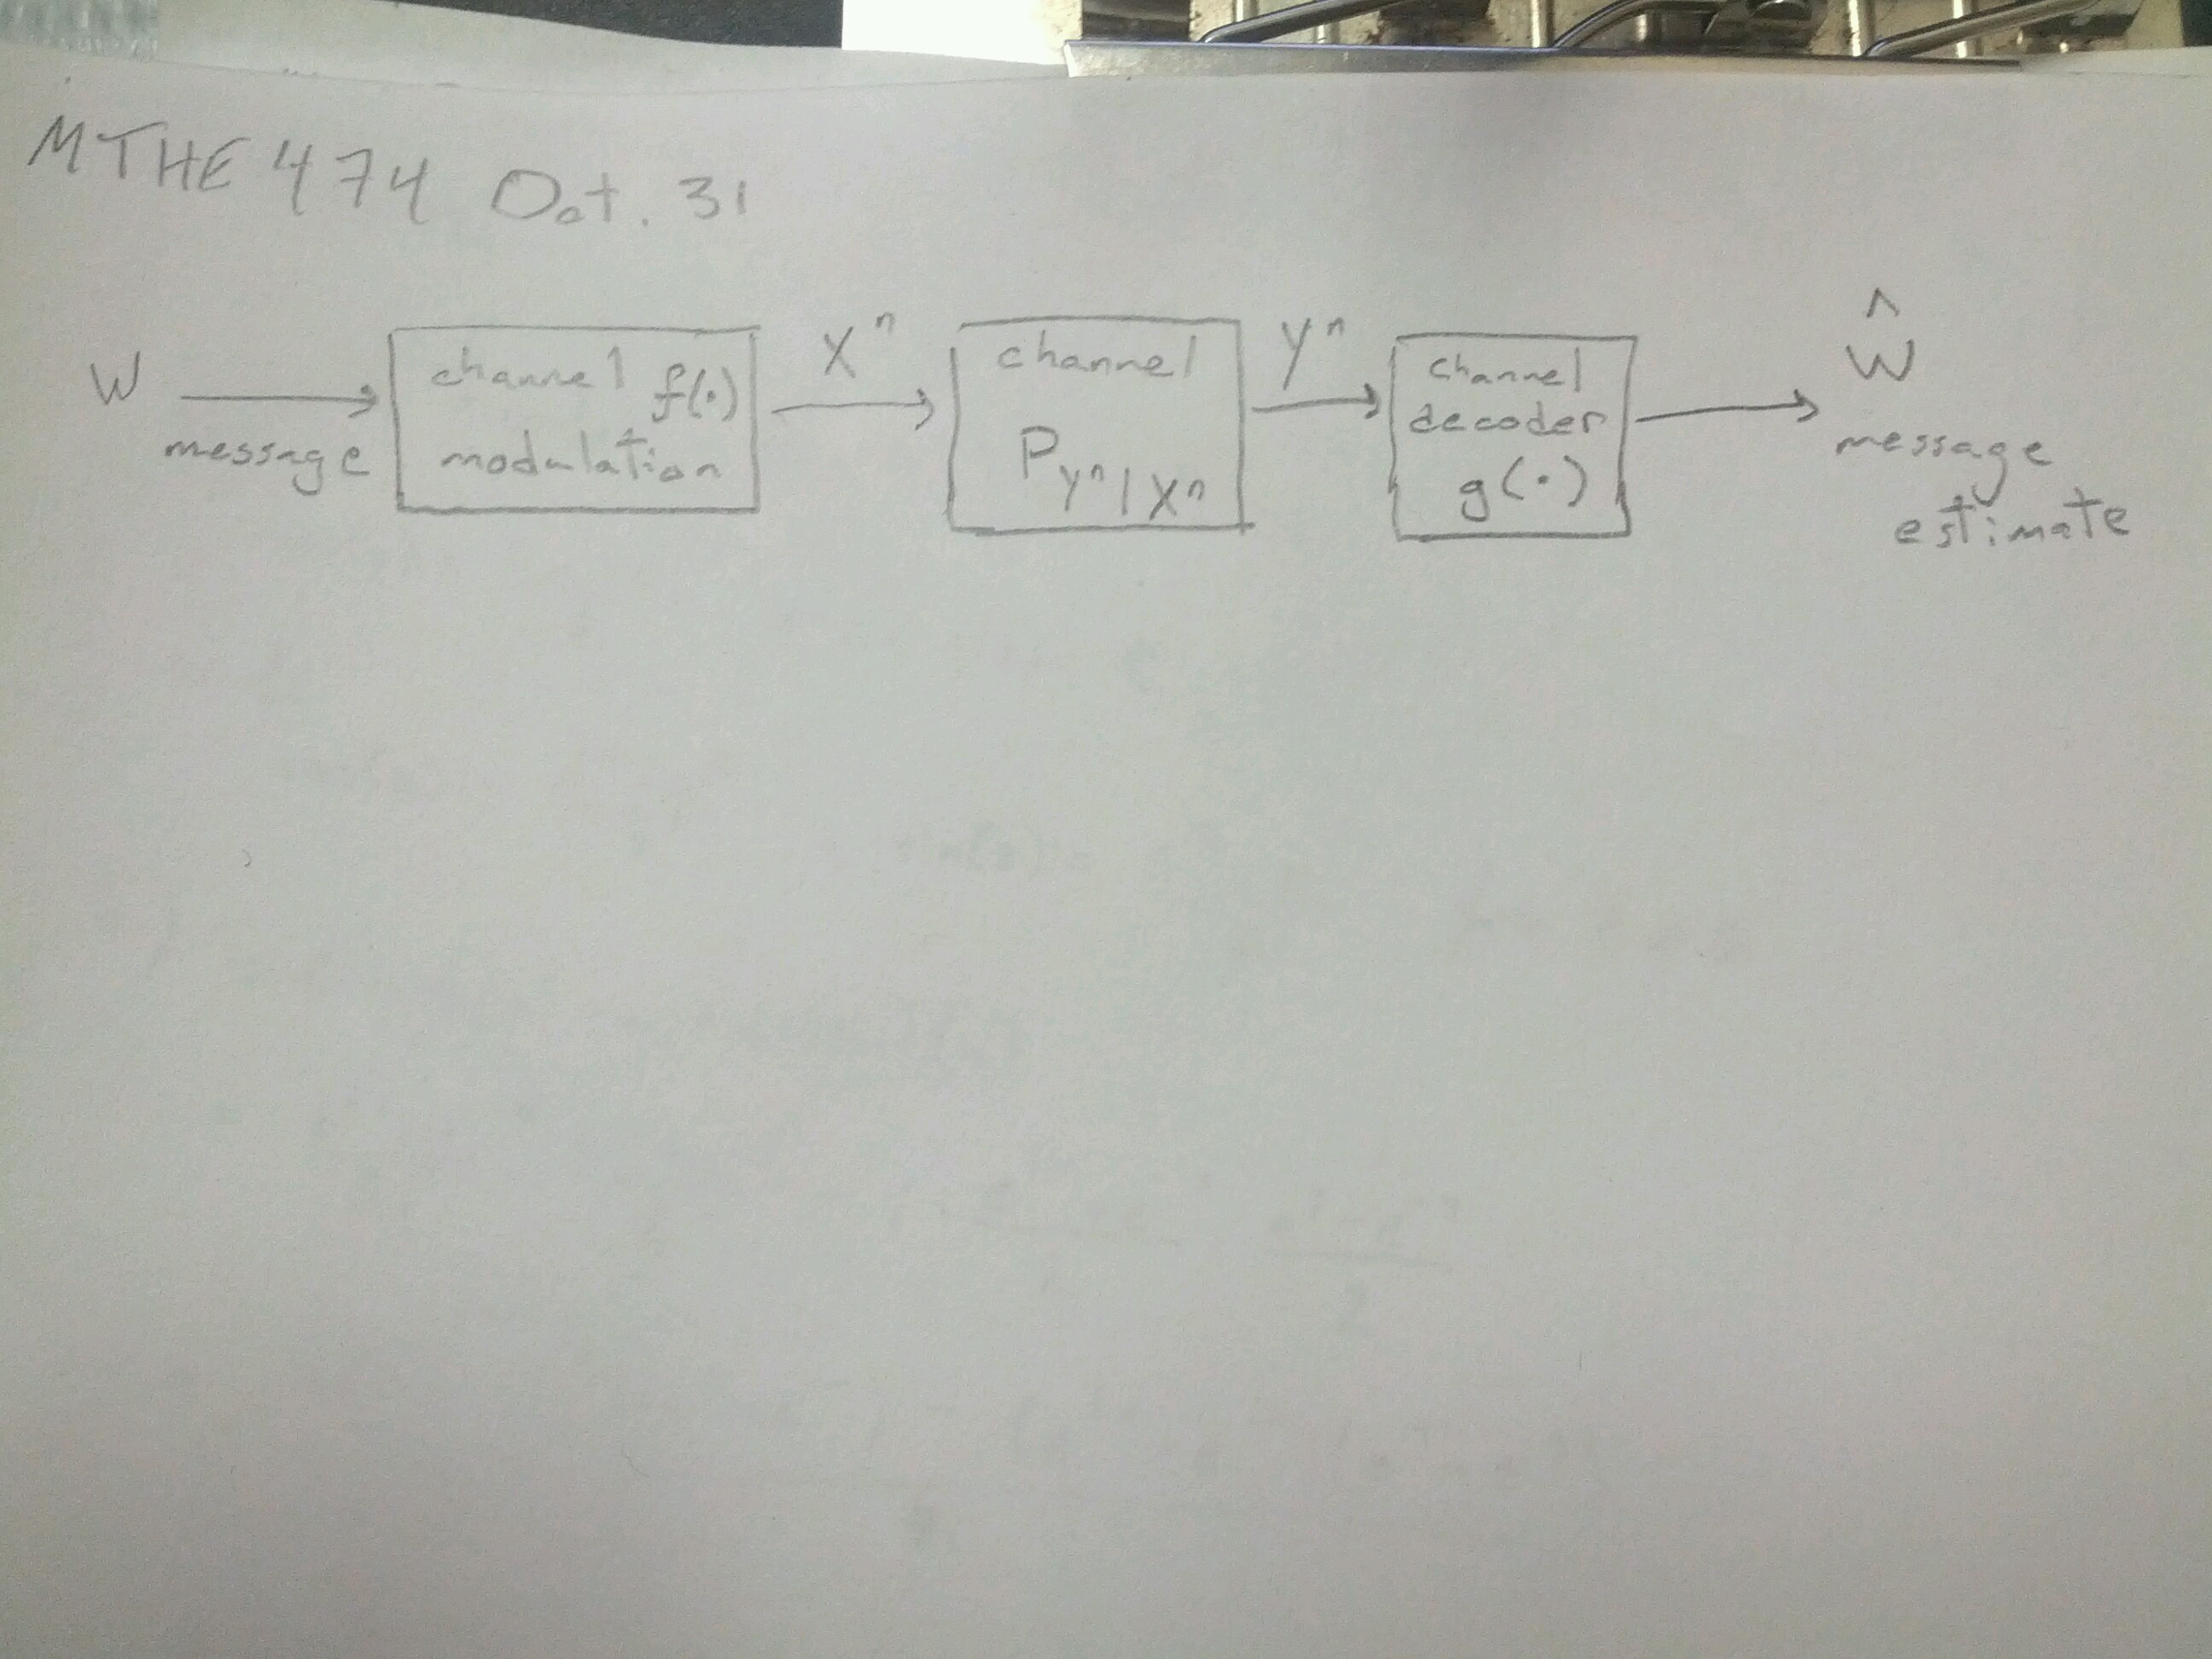 MTHE 474 Oct. 31
W
message
channel f(·)
modulation
Xⁿ
channel
P_{Yⁿ|Xⁿ}
Yⁿ
channel
decoder
g(·)
Ŵ
message
estimate